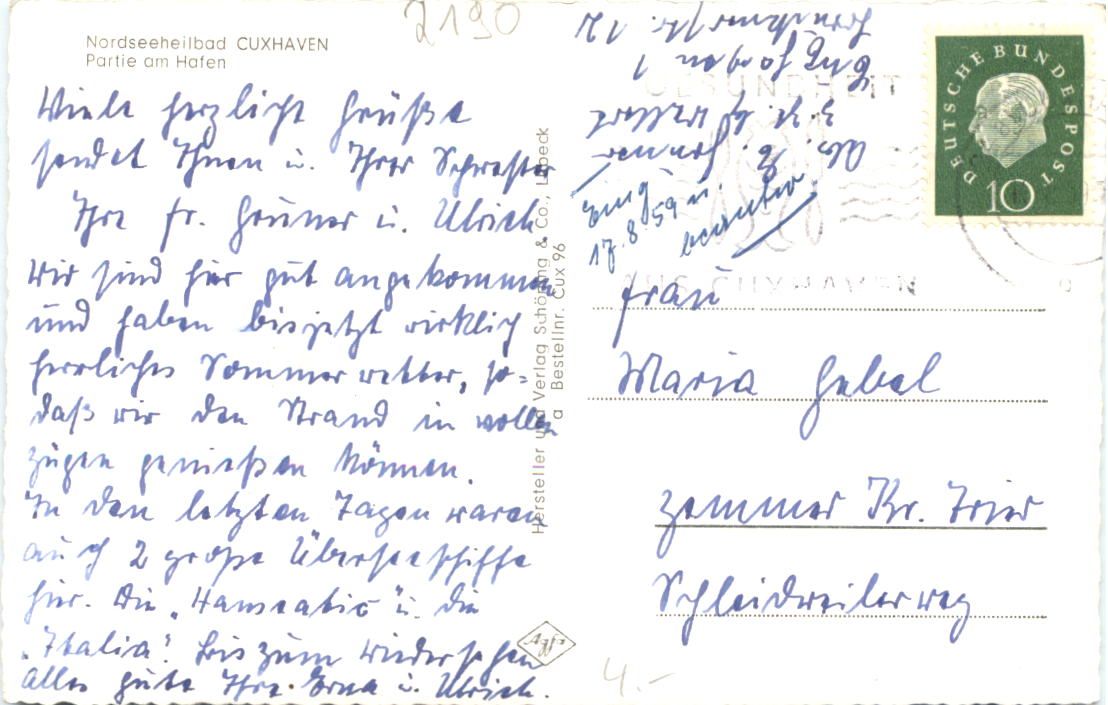 2190
Nordseeheilbad CUXHAVEN
Partie am Hafen
Viele herzliche Grüße
sendet Ihnen u. Ihrer Schwester
Ihre Fr. Grüner u. Ulrich.
Wir sind hier gut angekommen
und haben bis jetzt wirklich
herrliches Sommerwetter, so-
daß wir den Strand in vollen
Zügen genießen können.
In den letzten Tagen waren
auch 2 große Überseeschiffe
hier. Die „Hanseatic" u. die
„Italia". Bis zum Wiedersehen
alles Gute Ihre Erna u. Ulrich.
Hersteller und Verlag Schöning & Co., Lübeck
a Bestellnr. Cux 96
Agfa
Abs.
z. Zt.
12
Eing.
17.8.59 u.
beantw.
GESUNDHEIT
AUS CUXHAVEN
DEUTSCHE BUNDESPOST
10
Frau
Maria Gebel
Zemmer Kr. Trier
Schleidweilerweg
4.-